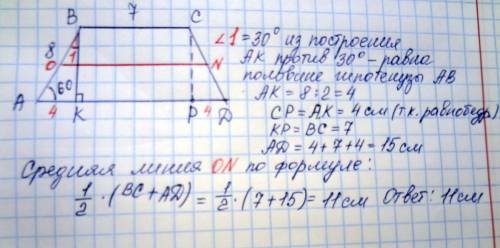 B 7 C
8
O 1 N
A 60° K P D
4 4
∠1 = 30° из построения
АК против 30° - равна
половине гипотенузы АВ
АК = 8 : 2 = 4
СР = АК = 4 см (т.к. равнобедр)
КР = ВС = 7
АD = 4 + 7 + 4 = 15 см
Средняя линия ON по формуле:
1/2 · (BC + AD) = 1/2 · (7 + 15) = 11 см Ответ: 11 см